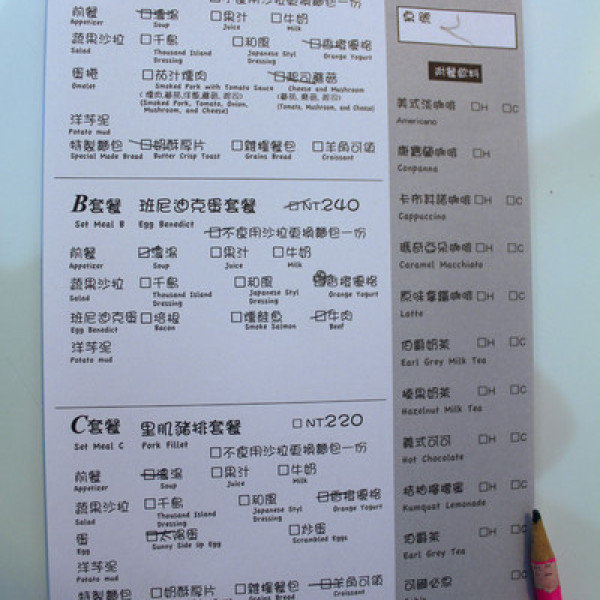 □不食用沙拉更換麵包一份
前餐 □濃湯 □果汁 □牛奶
Appetizer Soup Juice Milk
蔬果沙拉 □千島 □和風 □香橙優格
Salad Thousand Island Dressing Japanese Styl Dressing Orange Yogurt
蛋捲 □茄汁燻肉 □起司蘑菇
Omelet Smoked Pork with Tomato Sauce Cheese and Mushroom
(Smoked Pork, Tomato, Onion, Mushroom, and Cheese) (Tomato, Mushroom, and Cheese)
洋芋泥
Potato mud
特製麵包 □奶酥厚片 □雜糧餐包 □羊角可頌
Special Made Bread Butter Crisp Toast Grains Bread Croissant
B套餐 班尼迪克蛋套餐 □NT.240
Set Meal B Egg Benedict
□不食用沙拉更換麵包一份
前餐 □濃湯 □果汁 □牛奶
Appetizer Soup Juice Milk
蔬果沙拉 □千島 □和風 □香橙優格
Salad Thousand Island Dressing Japanese Styl Dressing Orange Yogurt
班尼迪克蛋 □培根 □燻鮭魚 □牛肉
Egg Benedict Bacon Smoke Salmon Beef
洋芋泥
Potato mud
C套餐 里肌豬排套餐 □NT.220
Set Meal C Pork Fillet
□不食用沙拉更換麵包一份
前餐 □濃湯 □果汁 □牛奶
Appetizer Soup Juice Milk
蔬果沙拉 □千島 □和風 □香橙優格
Salad Thousand Island Dressing Japanese Styl Dressing Orange Yogurt
蛋 □太陽蛋 □炒蛋
Egg Sunny Side Up Egg Scrambled Eggs
洋芋泥
Potato mud
特製麵包 □奶酥厚片 □雜糧餐包 □羊角可頌
桌號
附餐飲料
美式咖啡 □H □C
Americano
康寶蘭咖啡 □H
Conpanna
卡布其諾咖啡 □H □C
Cappuccino
瑪奇亞朵咖啡 □H □C
Caramel Macchiato
原味拿鐵咖啡 □H □C
Latte
伯爵奶茶 □H □C
Earl Grey Milk Tea
榛果奶茶 □H □C
Hazelnut Milk Tea
義式可可 □H □C
Hot Chocolate
桔柚檸檬蜜 □H □C
Kumquat Lemonade
伯爵茶 □H □C
Earl Grey Tea
可爾必思